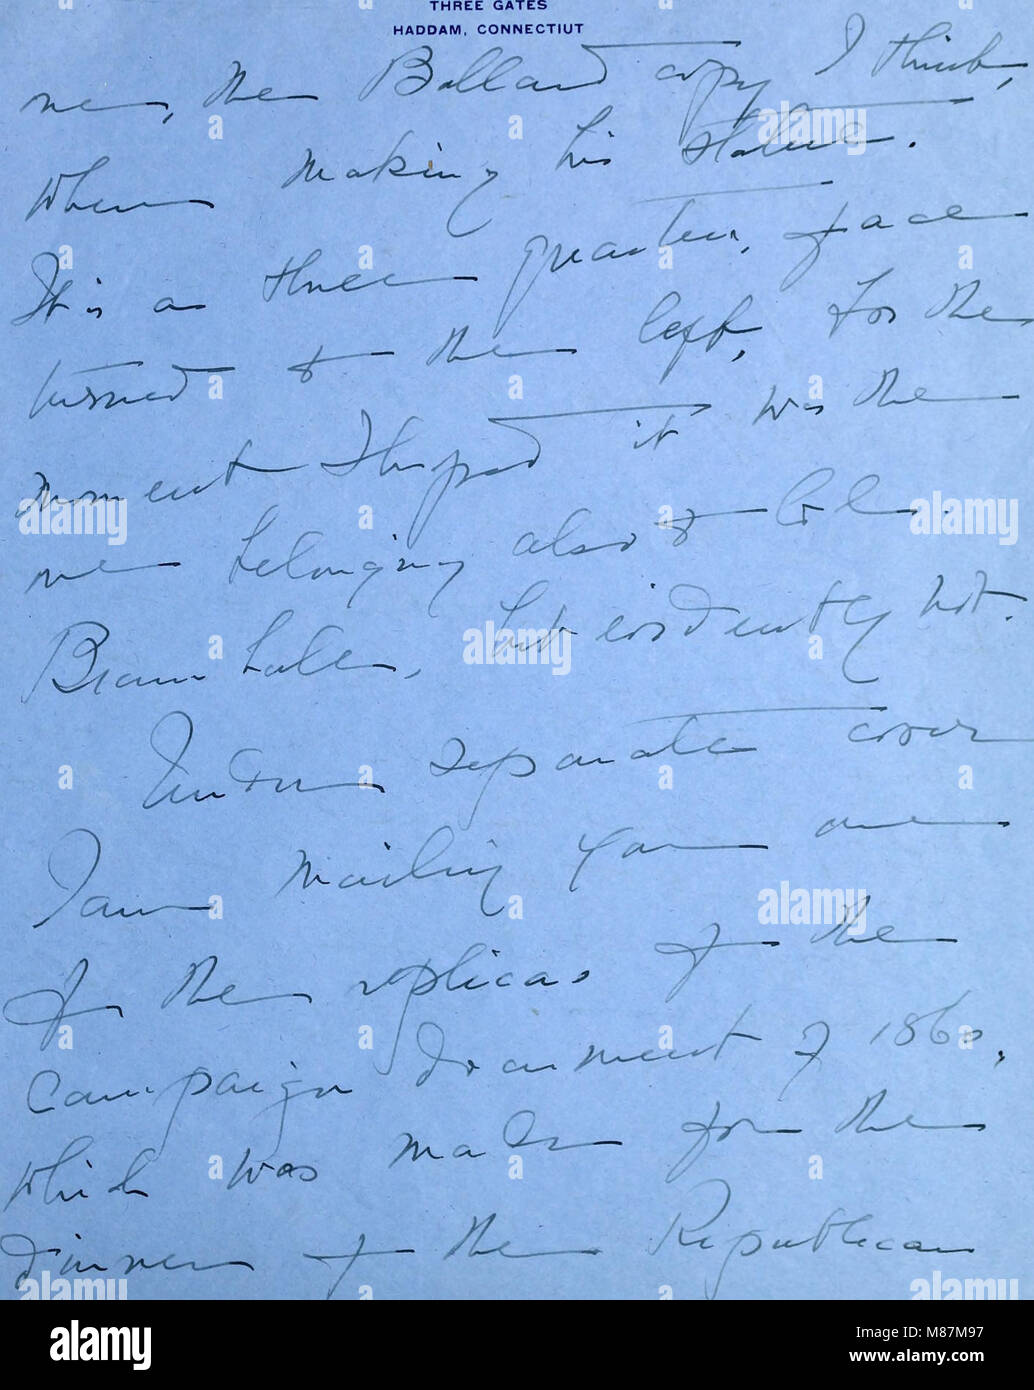 THREE GATES
HADDAM, CONNECTIUT
me, the Ballard copy I think,
when making his statue.
It is a three quarter, face
turned to the left, for the
moment I hoped it was the
one belonging also to Col.
Bramhall, but evidently not.
Under separate cover
I am mailing you one
of the replicas of the
campaign document of 1860,
which was made for the
dinner of the Republican
alamy
Image ID: M87M97
www.alamy.com